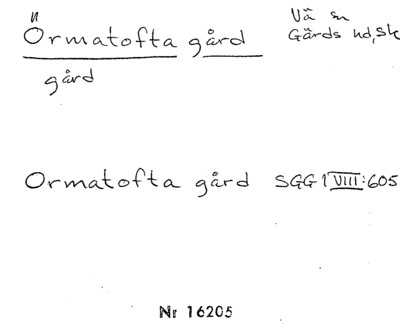 Ormatofta gård
Vä sn
Gärds hd, Sk
gård
Ormatofta gård SGG 1 VIII:605
Nr 16205